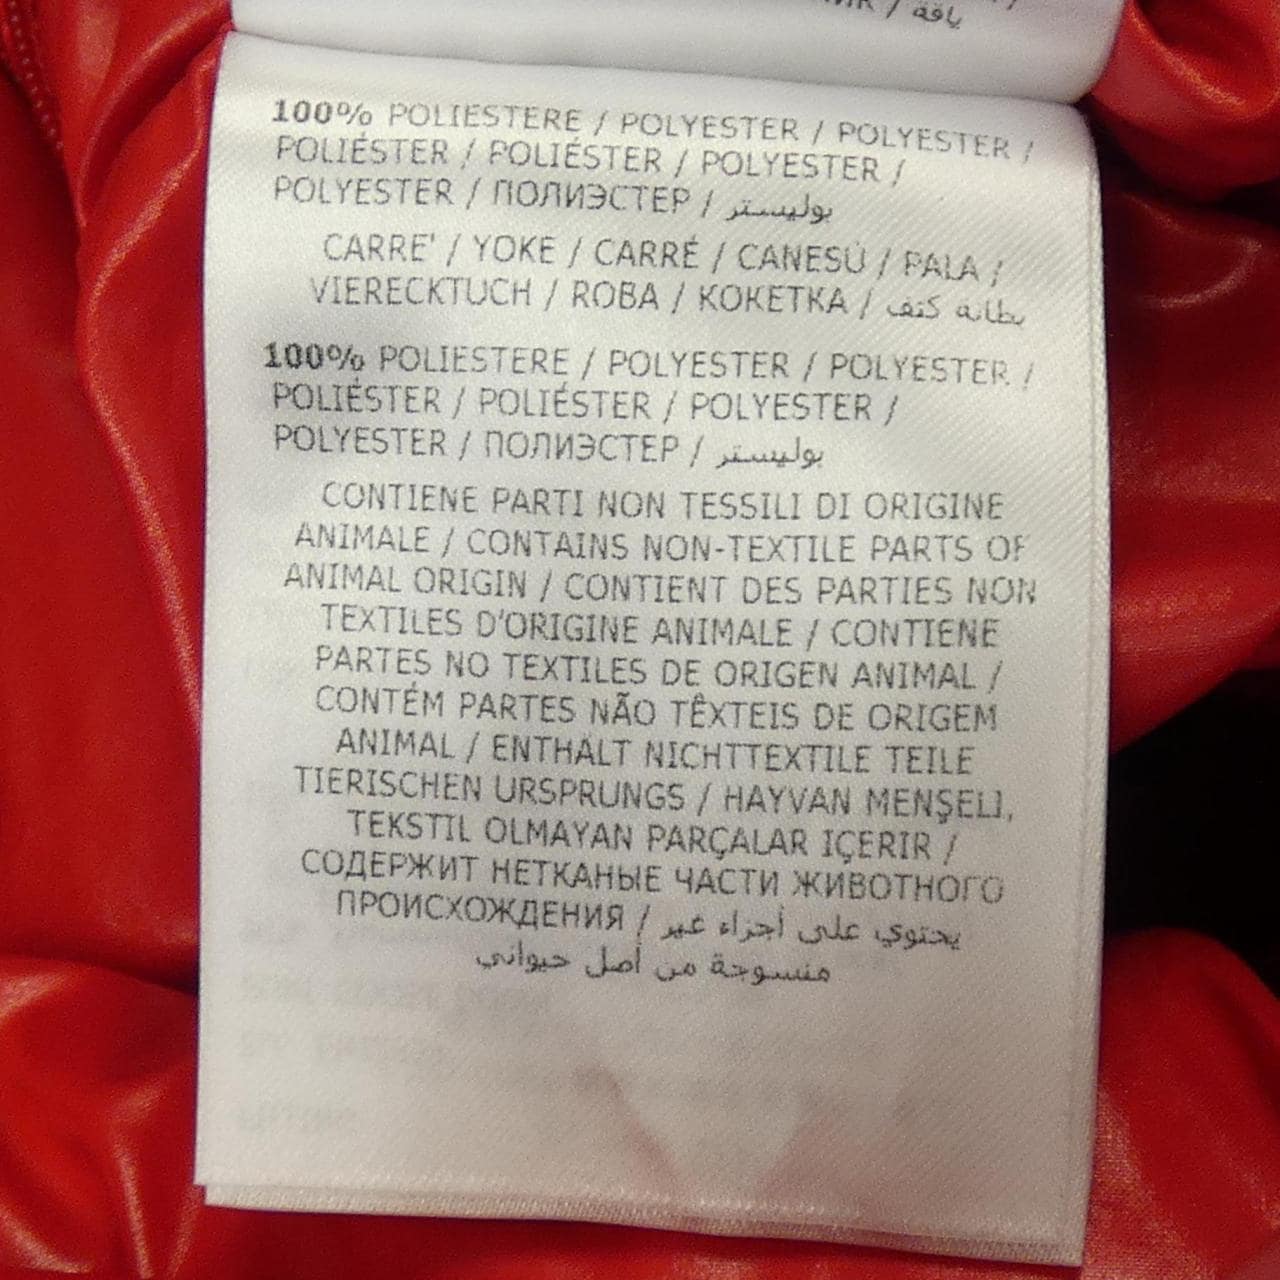 / ياقة
100% POLIESTERE / POLYESTER / POLYESTER /
POLIÉSTER / POLIÉSTER / POLYESTER /
POLYESTER / ПОЛИЭСТЕР / بوليستر
CARRE' / YOKE / CARRÉ / CANESÚ / PALA /
VIERECKTUCH / ROBA / КОКЕТКА / بطانة كتف
100% POLIESTERE / POLYESTER / POLYESTER /
POLIÉSTER / POLIÉSTER / POLYESTER /
POLYESTER / ПОЛИЭСТЕР / بوليستر
CONTIENE PARTI NON TESSILI DI ORIGINE
ANIMALE / CONTAINS NON-TEXTILE PARTS OF
ANIMAL ORIGIN / CONTIENT DES PARTIES NON
TEXTILES D'ORIGINE ANIMALE / CONTIENE
PARTES NO TEXTILES DE ORIGEN ANIMAL /
CONTÉM PARTES NÃO TÊXTEIS DE ORIGEM
ANIMAL / ENTHÄLT NICHTTEXTILE TEILE
TIERISCHEN URSPRUNGS / HAYVAN MENŞELI,
TEKSTIL OLMAYAN PARÇALAR IÇERIR /
СОДЕРЖИТ НЕТКАНЫЕ ЧАСТИ ЖИВОТНОГО
ПРОИСХОЖДЕНИЯ / يحتوي على أجزاء غير
منسوجة من أصل حيواني